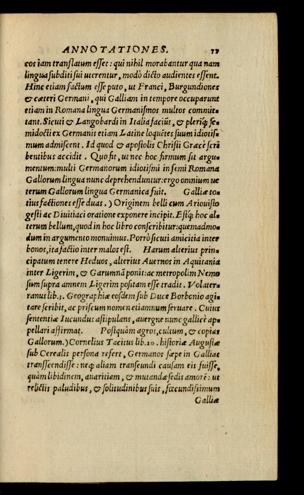 ANNOTATIONES. 19
eos iam translatum esset: qui nihil morabantur qua nam
lingua subditi sui uterentur, modò dicto audientes essent.
Hinc etiam factum esse puto, ut Franci, Burgundiones
& cæteri Germani, qui Galliam in tempore occuparunt
etiam in Romana lingua Germanismos multos commite-
tant. Sicuti & Langobardi in Italia faciũt, & pleriq; se
midocti ex Germanis etiam Latine loquẽtes suum idiotis-
mum admiscent. Id quod & apostolis Christi Græcè scri
bentibus accidit. Quo fit, ut nec hoc firmum sit argu-
mentum: multi Germanorum idiotismi in semi Romana
Gallorum lingua nunc deprehenduntur: ergo omnium ue
terum Gallorum lingua Germanica fuit. Galliæ to-
tius factiones esse duas.) Originem belli cum Ariouisto
gesti ac Diuitiaci oratione exponere incipit. Estq; hoc al-
terum bellum, quod in hoc libro conscribitur: quemadmo-
dum in argumento monuimus. Porrò sicuti amicitia inter
bonos, ita factio inter malos est. Harum alterius prin-
cipatum tenere Heduos, alterius Auernos in Aquitania
inter Ligerim, & Garumnã ponit: ac metropolim Nemo
sum supra amnem Ligerim positam esse tradit. Volater-
ranus lib.3. Geographiæ eosdem sub Duce Borbonio agi-
tare scribit, ac priscum nomen etiamnum seruare. Cuius
sententiæ Iucundus: astipulans, auergne nunc gallicè ap-
pellari affirmat. Postquàm agros, cultum, & copias
Gallorum.) Cornelius Tacitus lib.20. historiæ Augustæ
sub Cerealis persona refert, Germanos sæpe in Galliã
transcendisse: neq; aliam transeundi causam eis fuisse,
quàm libidinem, auaritiam, & mutandæ sedis amorẽ: ut
relictis paludibus, & solitudinibus suis, fœcundissimum
Galliæ